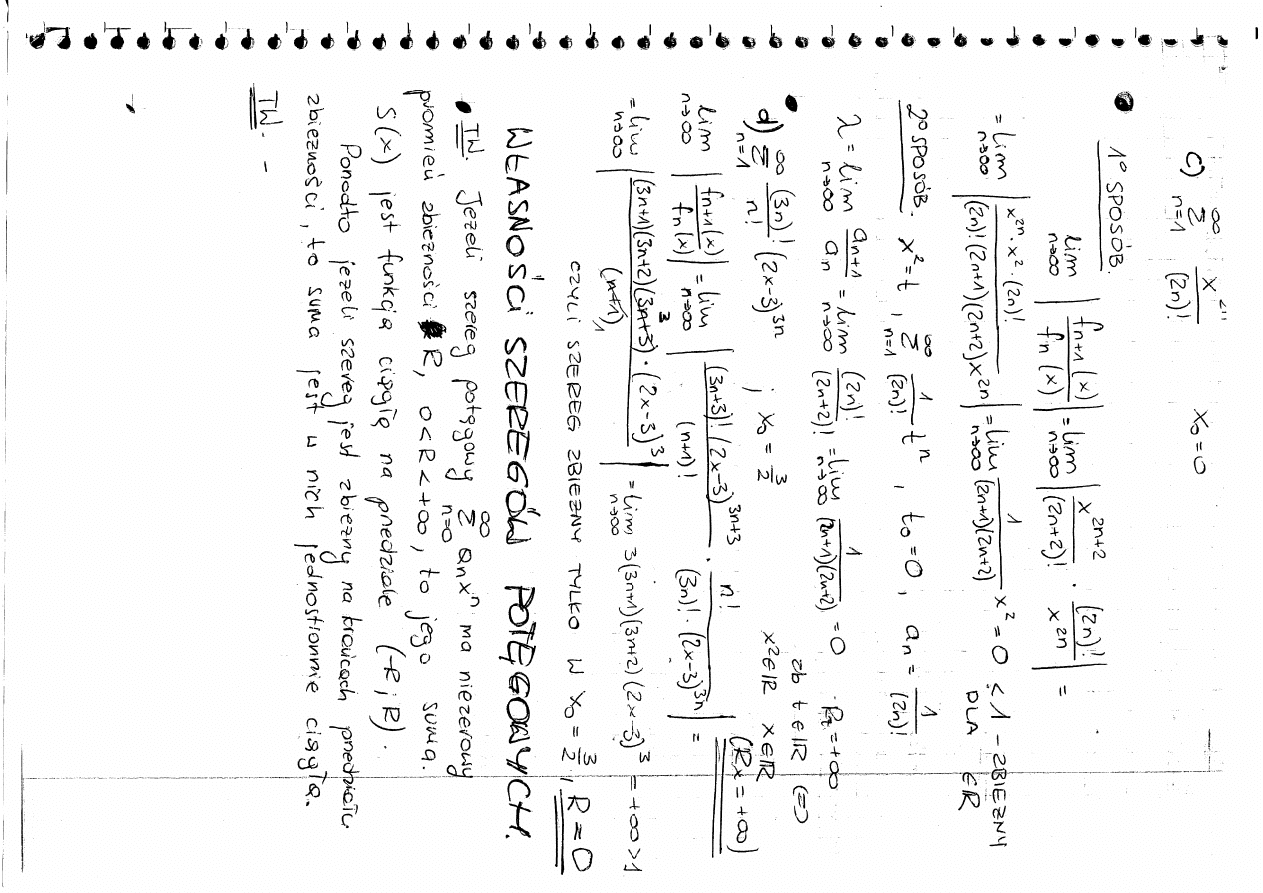 c) ∞Σn=1 x^2n/(2n)! x₀=0
1° SPOSÓB.
lim n→∞ |fn+1(x)/fn(x)| = lim n→∞ |x^(2n+2)/(2n+2)! · (2n)!/x^2n| =
= lim n→∞ |x^2n · x² · (2n)!/(2n)!(2n+1)(2n+2)x^2n| = lim n→∞ 1/(2n+1)(2n+2) x² = 0 < 1 - ZBIEŻNY
DLA ∈ℝ
2° SPOSÓB. x²=t, ∞Σn=1 1/(2n)! t^n, t₀=0, an = 1/(2n)!
λ = lim n→∞ an+1/an = lim n→∞ (2n)!/(2n+2)! = lim n→∞ 1/(2n+1)(2n+2) = 0 Rt=+∞
zb t∈ℝ ⇔
x²∈ℝ x∈ℝ
(Rx=+∞)
d) ∞Σn=1 (3n)!/n! (2x-3)^3n ; x₀=3/2
lim n→∞ |fn+1(x)/fn(x)| = lim n→∞ |(3n+3)!(2x-3)^(3n+3)/(n+1)! · n!/(3n)!·(2x-3)^3n| =
= lim n→∞ |(3n+1)(3n+2)(3n+3)³·(2x-3)³/(n+1)₁| = lim n→∞ 3(3n+1)(3n+2)(2x-3)³ = +∞ > 1
CZYLI SZEREG ZBIEŻNY TYLKO W x₀=3/2, R=0
WŁASNOŚCI SZEREGÓW POTĘGOWYCH.
• TW. Jeżeli szereg potęgowy ∞Σn=0 anx^n ma niezerowy
promień zbieżności R, 0<R<+∞, to jego suma
S(x) jest funkcją ciągłą na przedziale (-R;R).
Ponadto jeżeli szereg jest zbieżny na krańcach przedziału
zbieżności, to suma jest w nich jednostronnie ciągła.
TW. -